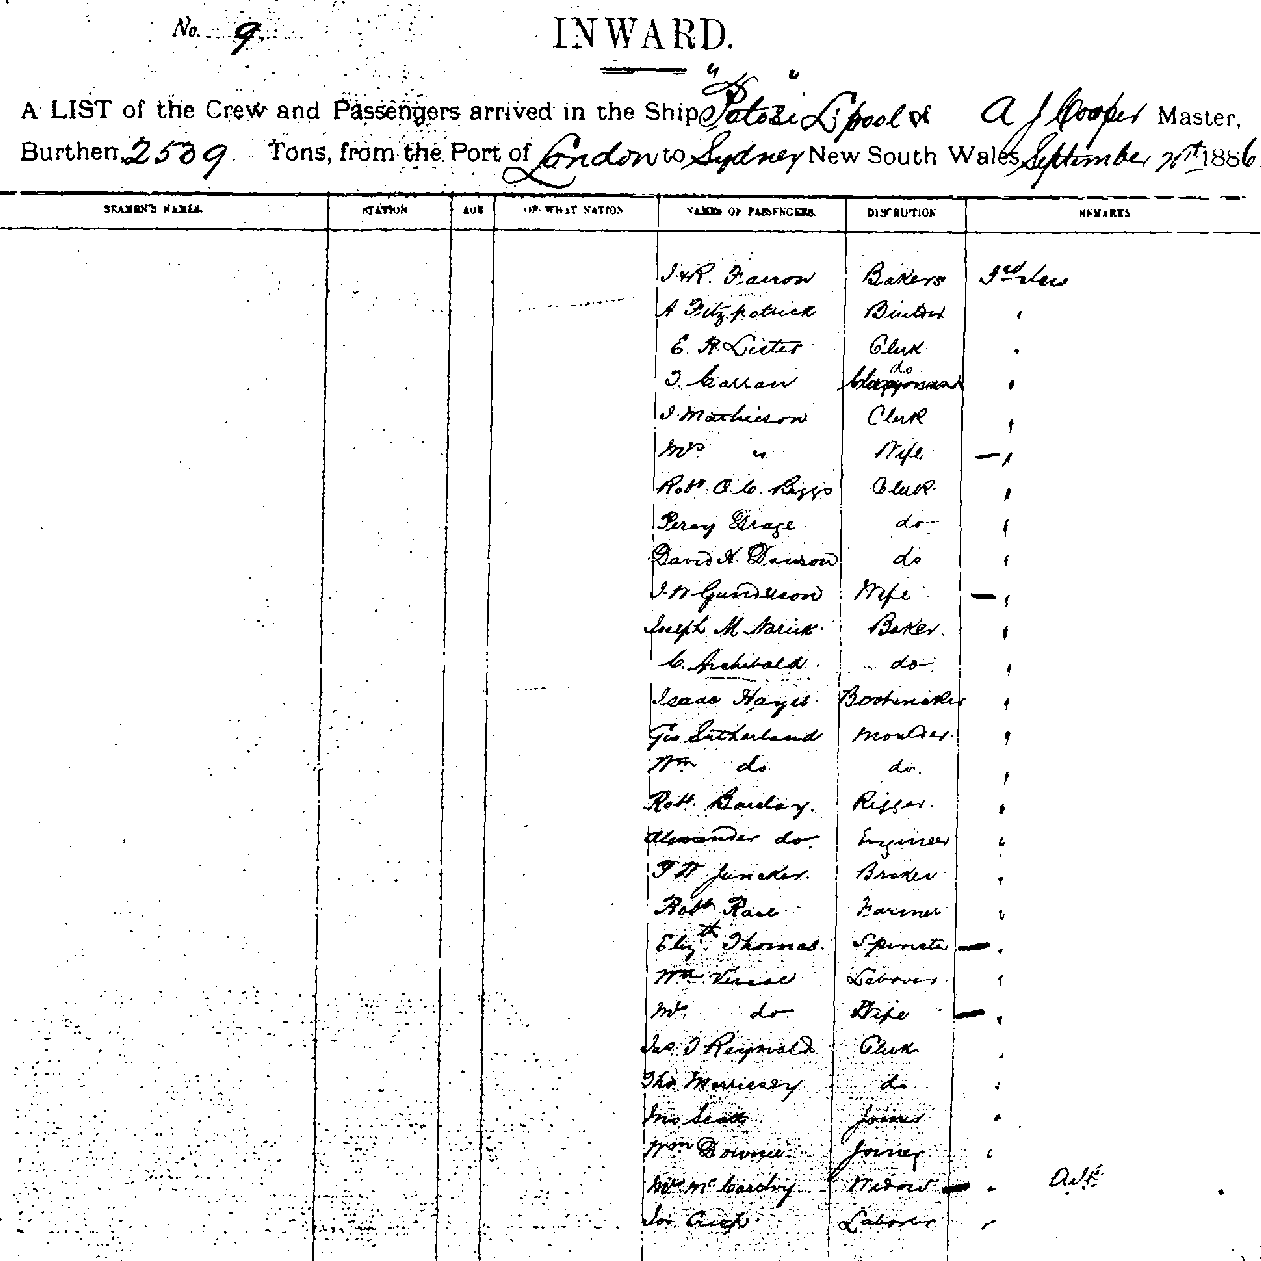 No. 9.
INWARD.
A LIST of the Crew and Passengers arrived in the Ship "Potosi" L'pool of A J Cooper Master,
Burthen 2509 Tons, from the Port of London to Sydney New South Wales, September 1886
SEAMEN'S NAMES. STATION AGE OF WHAT NATION NAMES OF PASSENGERS. DISCRIPTION REMARKS
J & R. Bakers 3rd
A Fitzpatrick "
E. A Lister Clerk "
do
T. Carran "
J Mathieson Clerk "
Mrs " Wife — "
Robt. C. C. Biggs Clerk "
Percy Drage do "
David A. Dawson do "
J W Gunderson Wife — "
Joseph M Baker "
C. Archibald do "
Isaac Hayes Bootmaker "
Geo Sutherland Moulder "
Wm do do "
Robt. Barclay. Rigger. "
Alexander do. Engineer "
F W Juncker. Broker "
Robt Race Farmer "
Elizth Thomas. Spinster — "
Wm Labourer "
Mrs do Wife — "
Jas J Reynolds Clerk "
Tho Morrissey do "
Jno Scott Joiner "
Wm Downie Joiner "
Mrs McCarthy Widow — "
Jos Labourer "